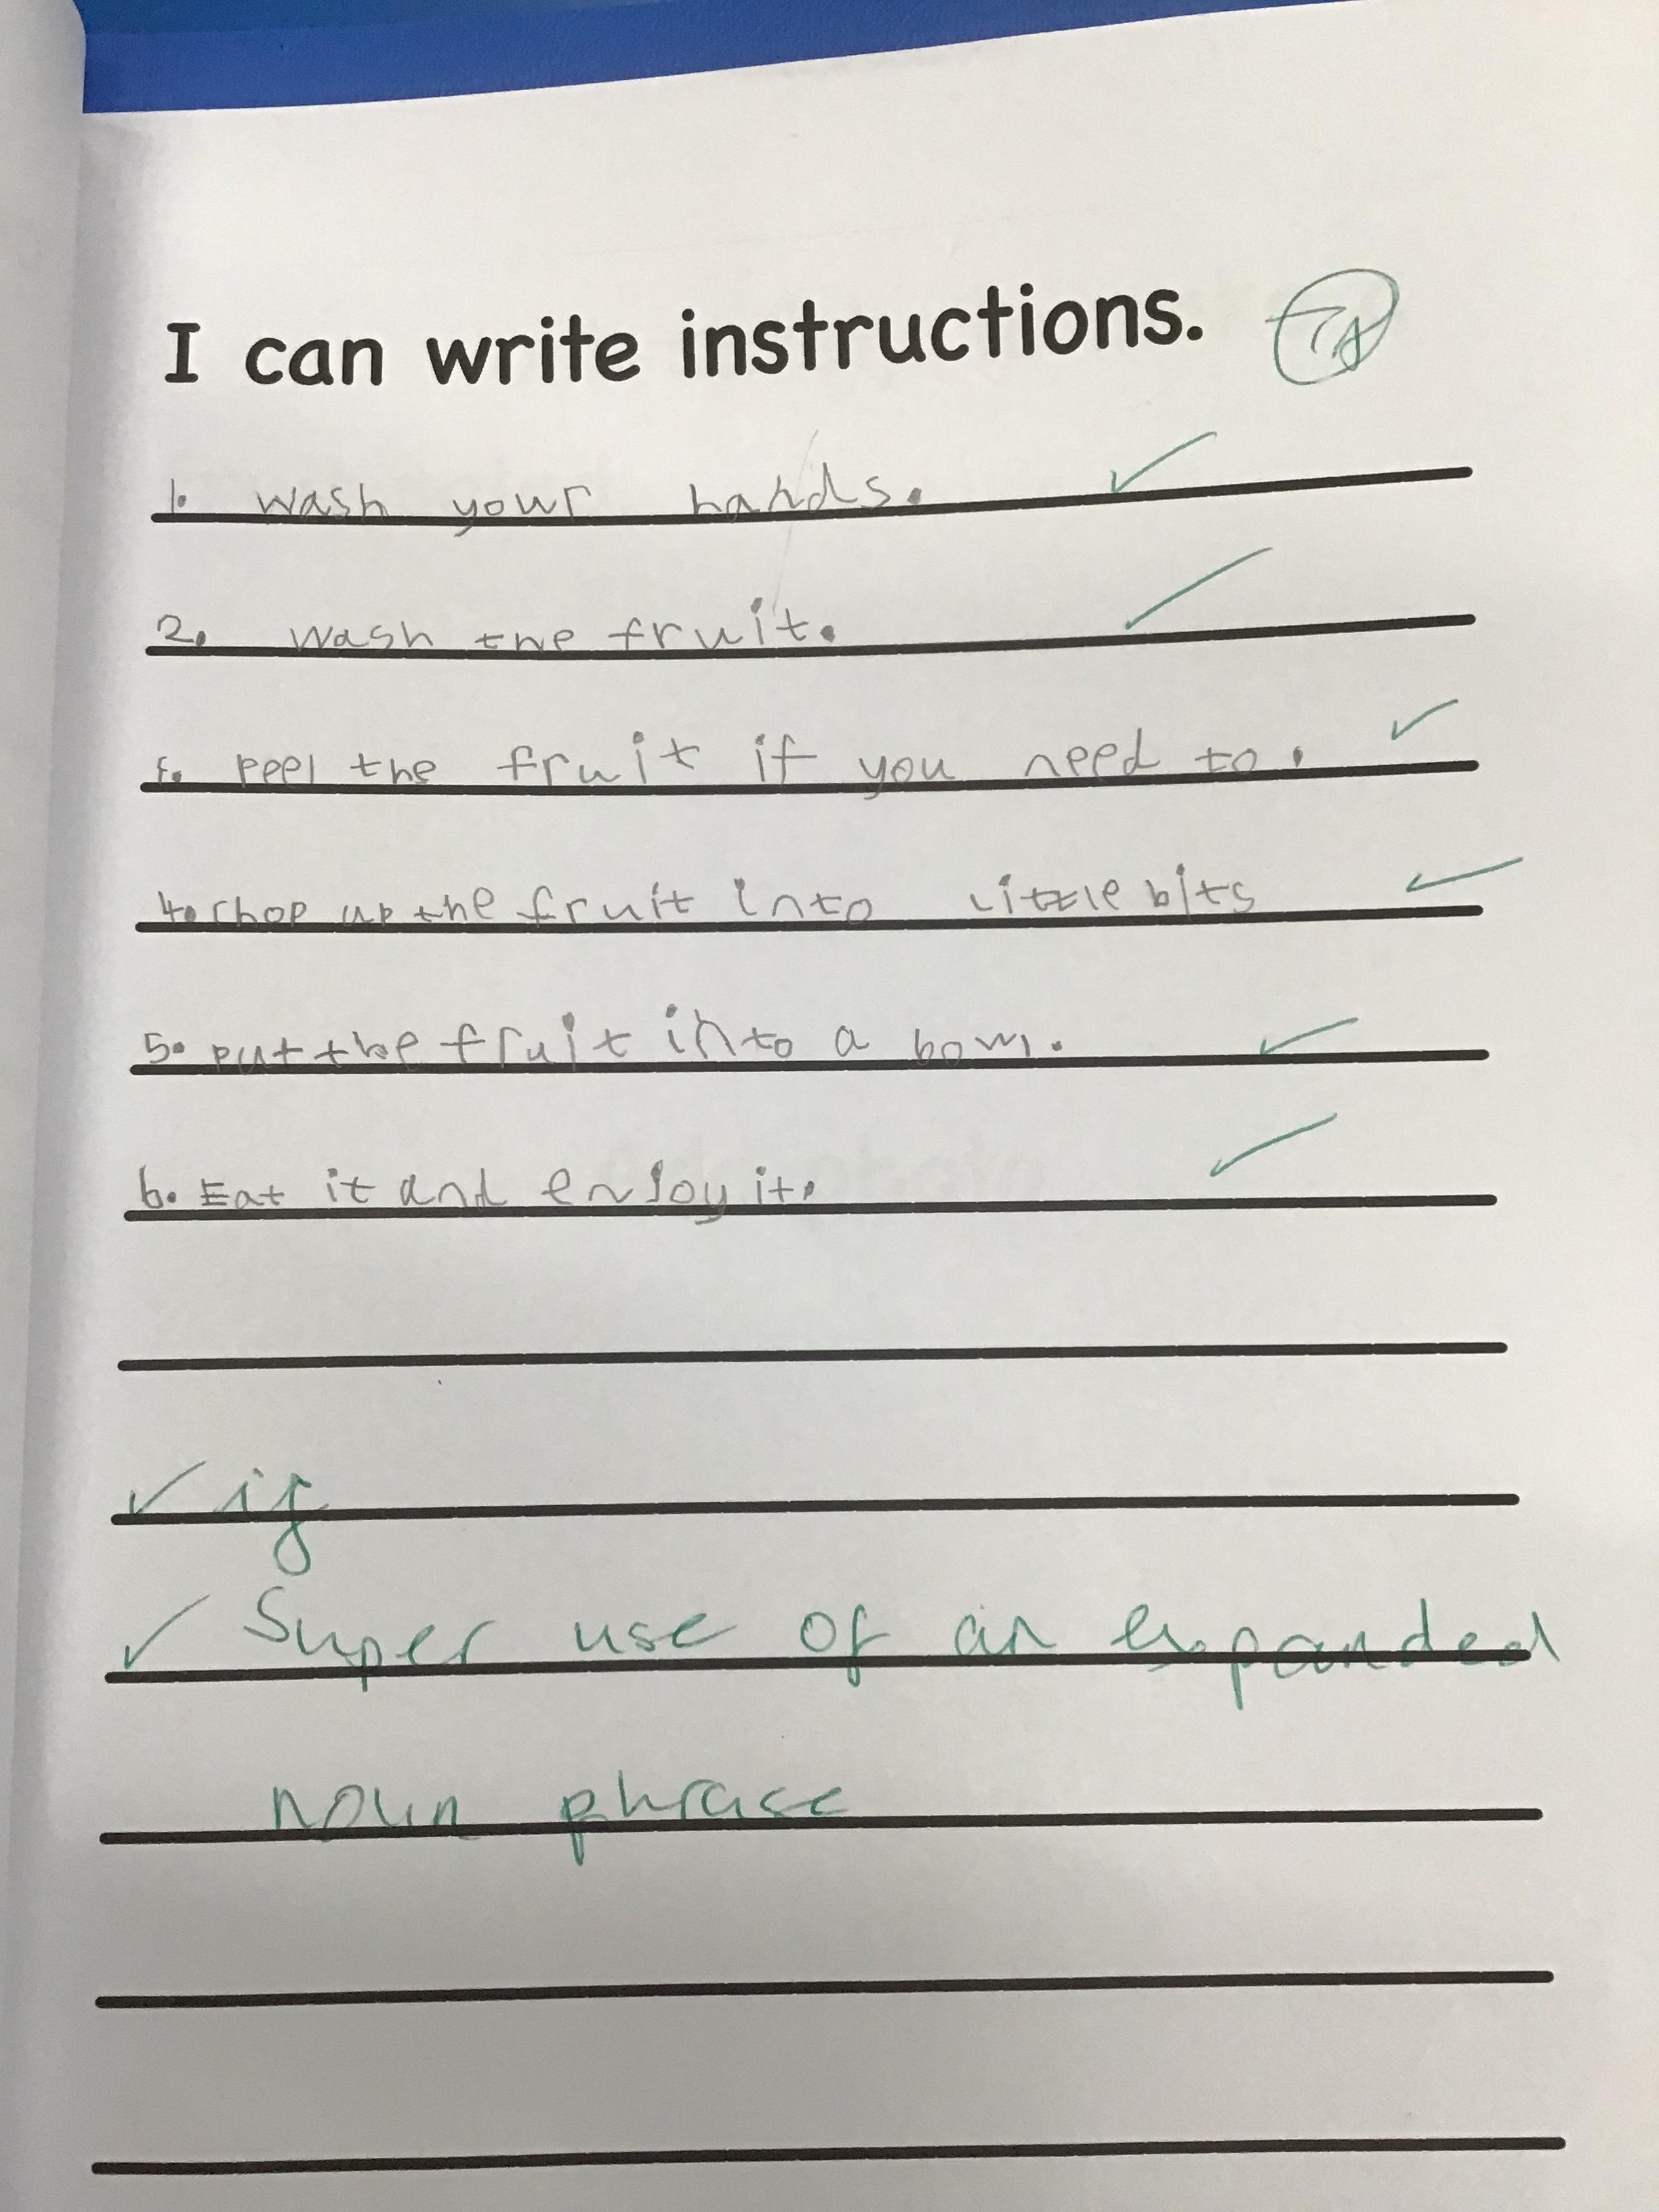 I can write instructions. TA
1. wash your hands.
2. wash the fruit.
peel the fruit if you need to.
4. chop up the fruit into little bits
5. put the fruit into a bowl.
6. Eat it and enjoy it.
✓ if
✓ Super use of an expanded
noun phrase